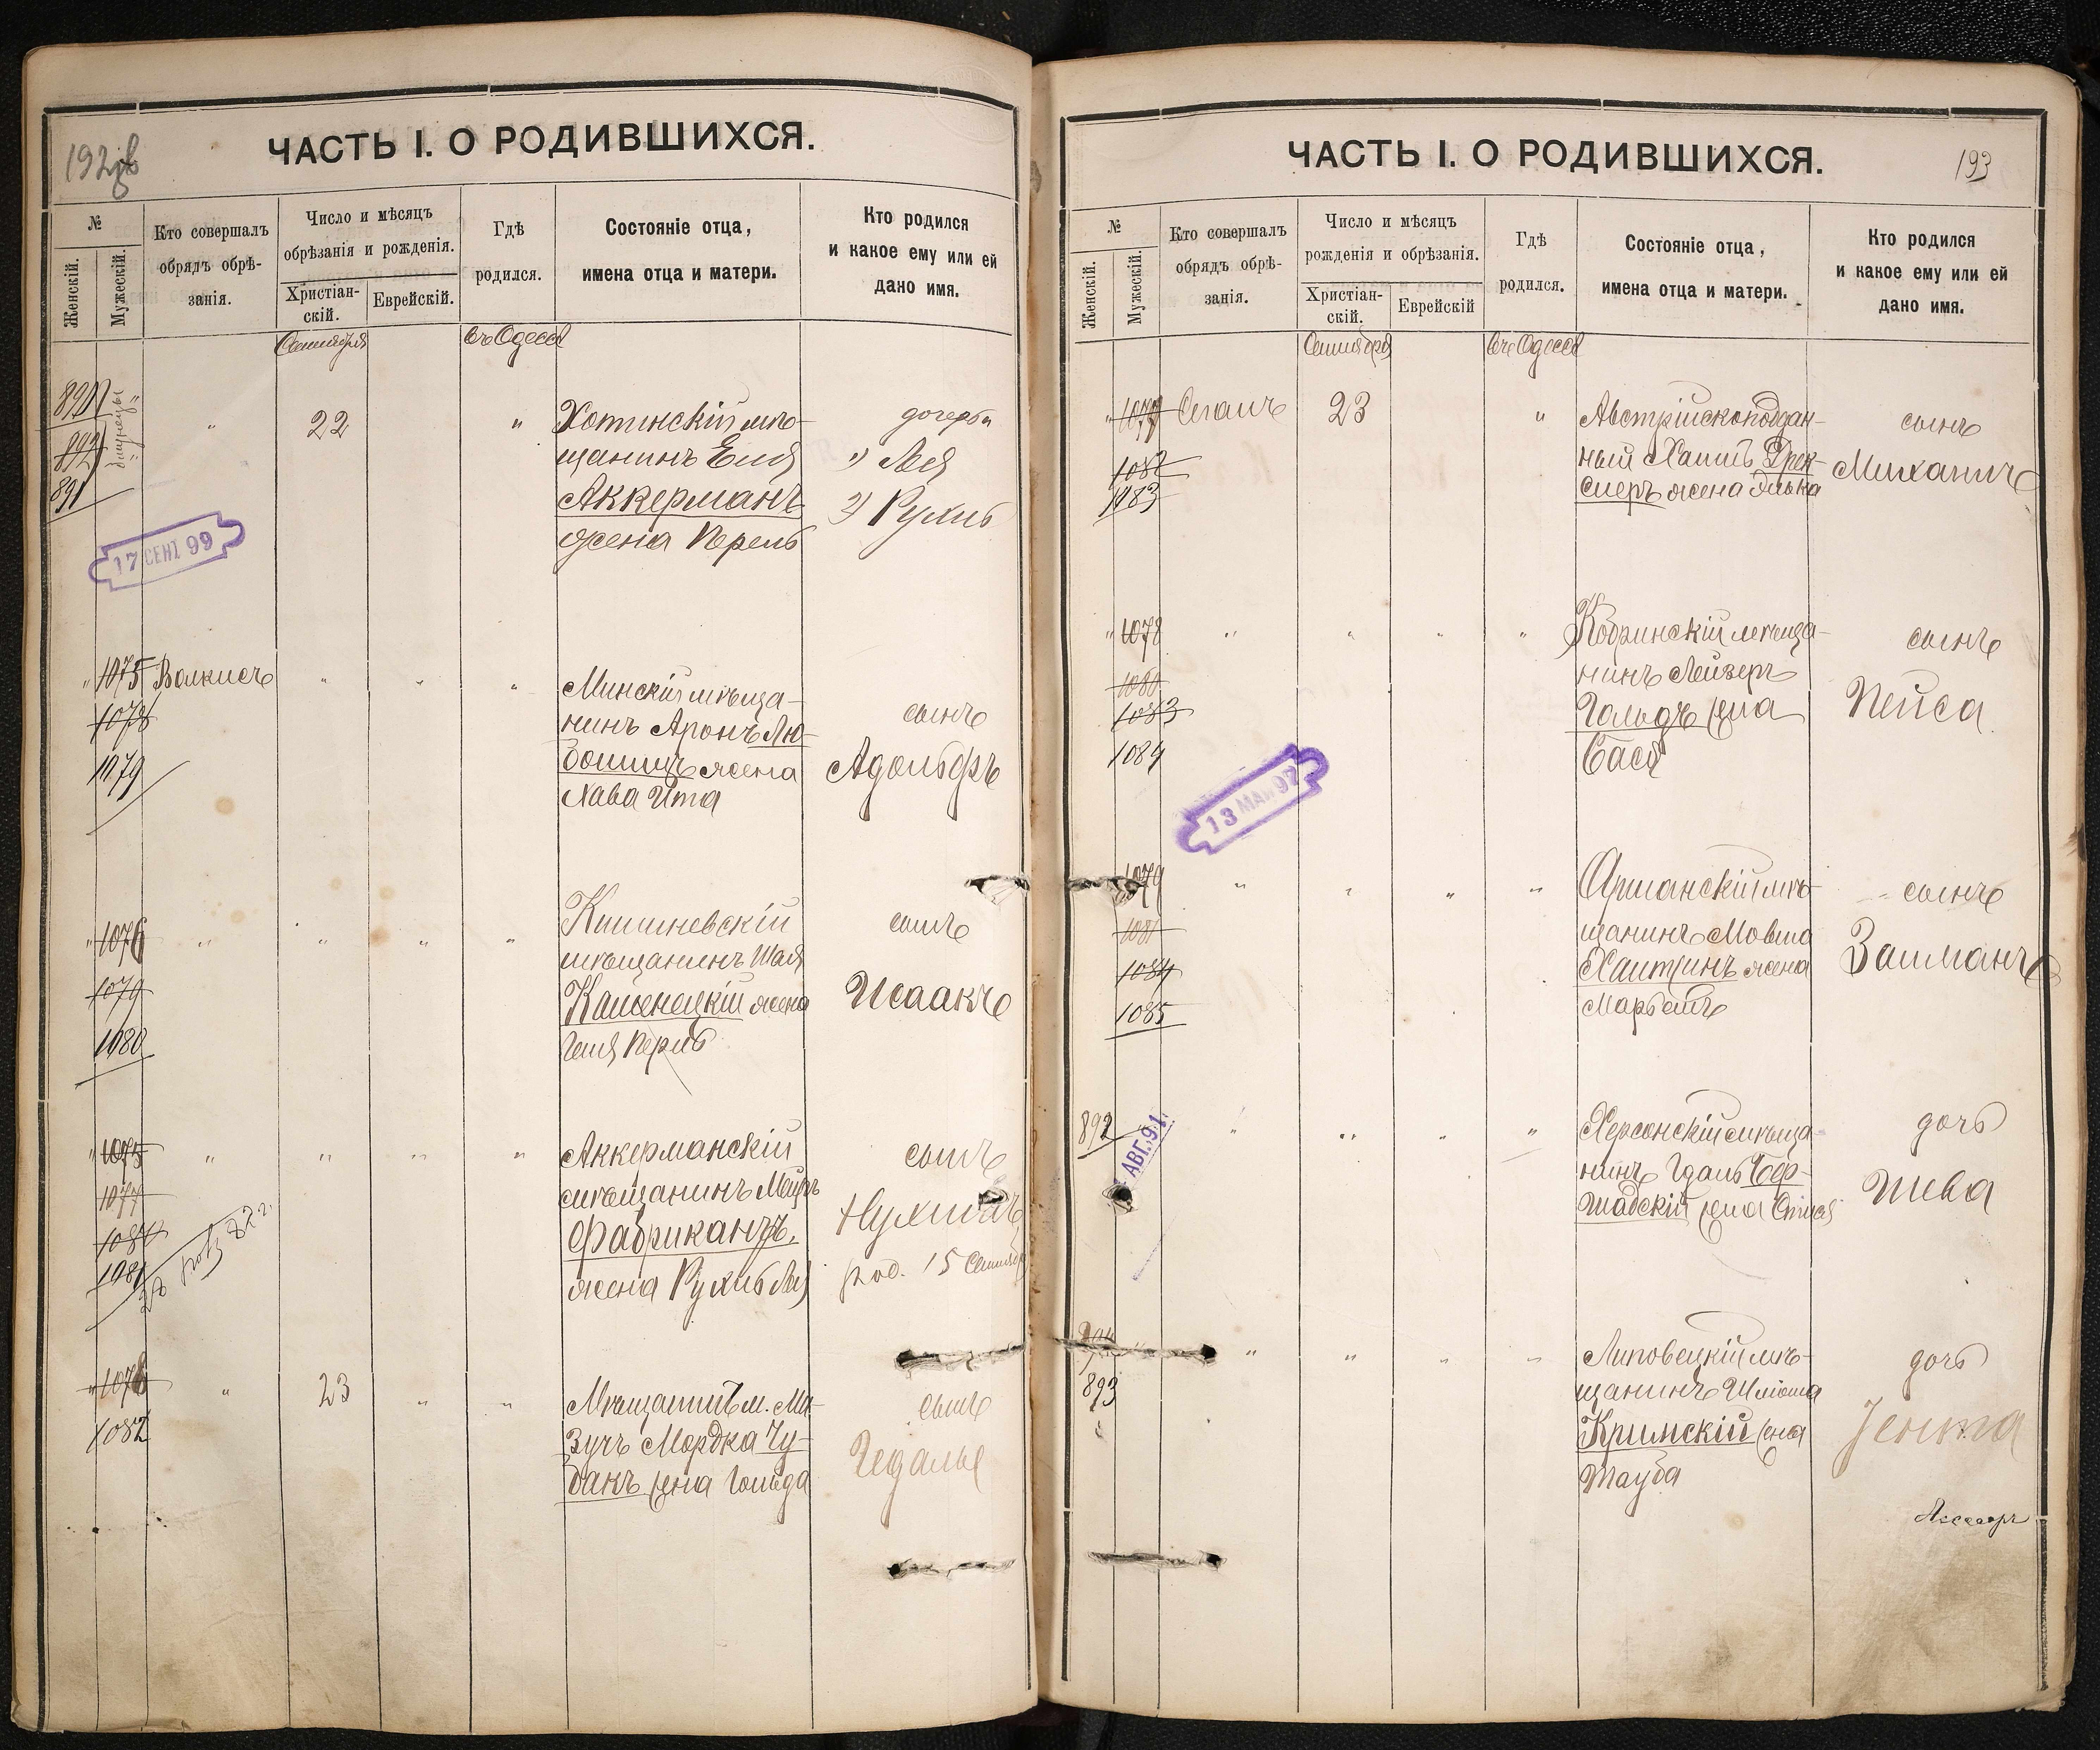 192 об
ЧАСТЬ I. О РОДИВШИХСЯ.
№
Женскій.
Мужескій.
Кто совершалъ
обрядъ обрѣ-
занія.
Число и мѣсяцъ
обрѣзанія и рожденія.
Христіан-
скій.
Еврейскій.
Гдѣ
родился.
Состояніе отца,
имена отца и матери.
Кто родился
и какое ему или ей
дано имя.
Сентября
въ Одессѣ
892
891
близнецы
"
22
"
Хотинскій мѣ-
щанинъ Еля
Аккерманъ
жена Перель
дочерьи
1) Лея
2) Рухль
17 СЕНТ 99
" 1075 Волкисъ
1078
1079
"
"
"
Минскій мѣща-
нинъ Аронъ Лю-
бошицъ жена
Хава Ита
сынъ
Адольфъ
" 1076
1079
1080
"
"
"
"
Кишиневскій
мѣщанинъ Шая
Каменецкій жена
Геня Перль
сынъ
Исаакъ
" 1075
1077
1080
1081
"
"
"
"
Аккерманскій
мѣщанинъ Меиръ
Фабрикантъ,
жена Рухль Лея
сынъ
Нухимъ
род. 15 Сентября
" 1076
1082
"
23
"
"
Мѣщанинъ м. Ма-
зучъ Мордка Чу-
банъ жена Гольда
сынъ
Гедалье
193
ЧАСТЬ I. О РОДИВШИХСЯ.
№
Женскій.
Мужескій.
Кто совершалъ
обрядъ обрѣ-
занія.
Число и мѣсяцъ
рожденія и обрѣзанія.
Христіан-
скій.
Еврейскій
Гдѣ
родился.
Состояніе отца,
имена отца и матери.
Кто родился
и какое ему или ей
дано имя.
Сентября
въ Одессѣ
" 1077
1082
1083
Сегалъ
23
"
Австрійскоподдан-
ный Хаимъ Дрек-
слеръ жена Элька
сынъ
Михаилъ
" 1078
1080
1083
1084
"
"
"
"
Кобринскій мѣща-
нинъ Лейзеръ
Гольдъ жена
Бася
сынъ
Пейса
13 МАЯ 97
1079
1081
1084
1085
"
"
"
"
мѣ-
щанинъ Мовша
Хаитинъ жена
Марьемъ
сынъ
Залманъ
892
АВГ. 91.
"
"
"
"
Херсонскій мѣща-
нинъ Гдаль Бер-
шадскій жена
дочь
Шева
893
"
"
"
"
Липовецкій мѣ-
щанинъ Шлiома
Кримскій жена
Тауба
дочь
Јента